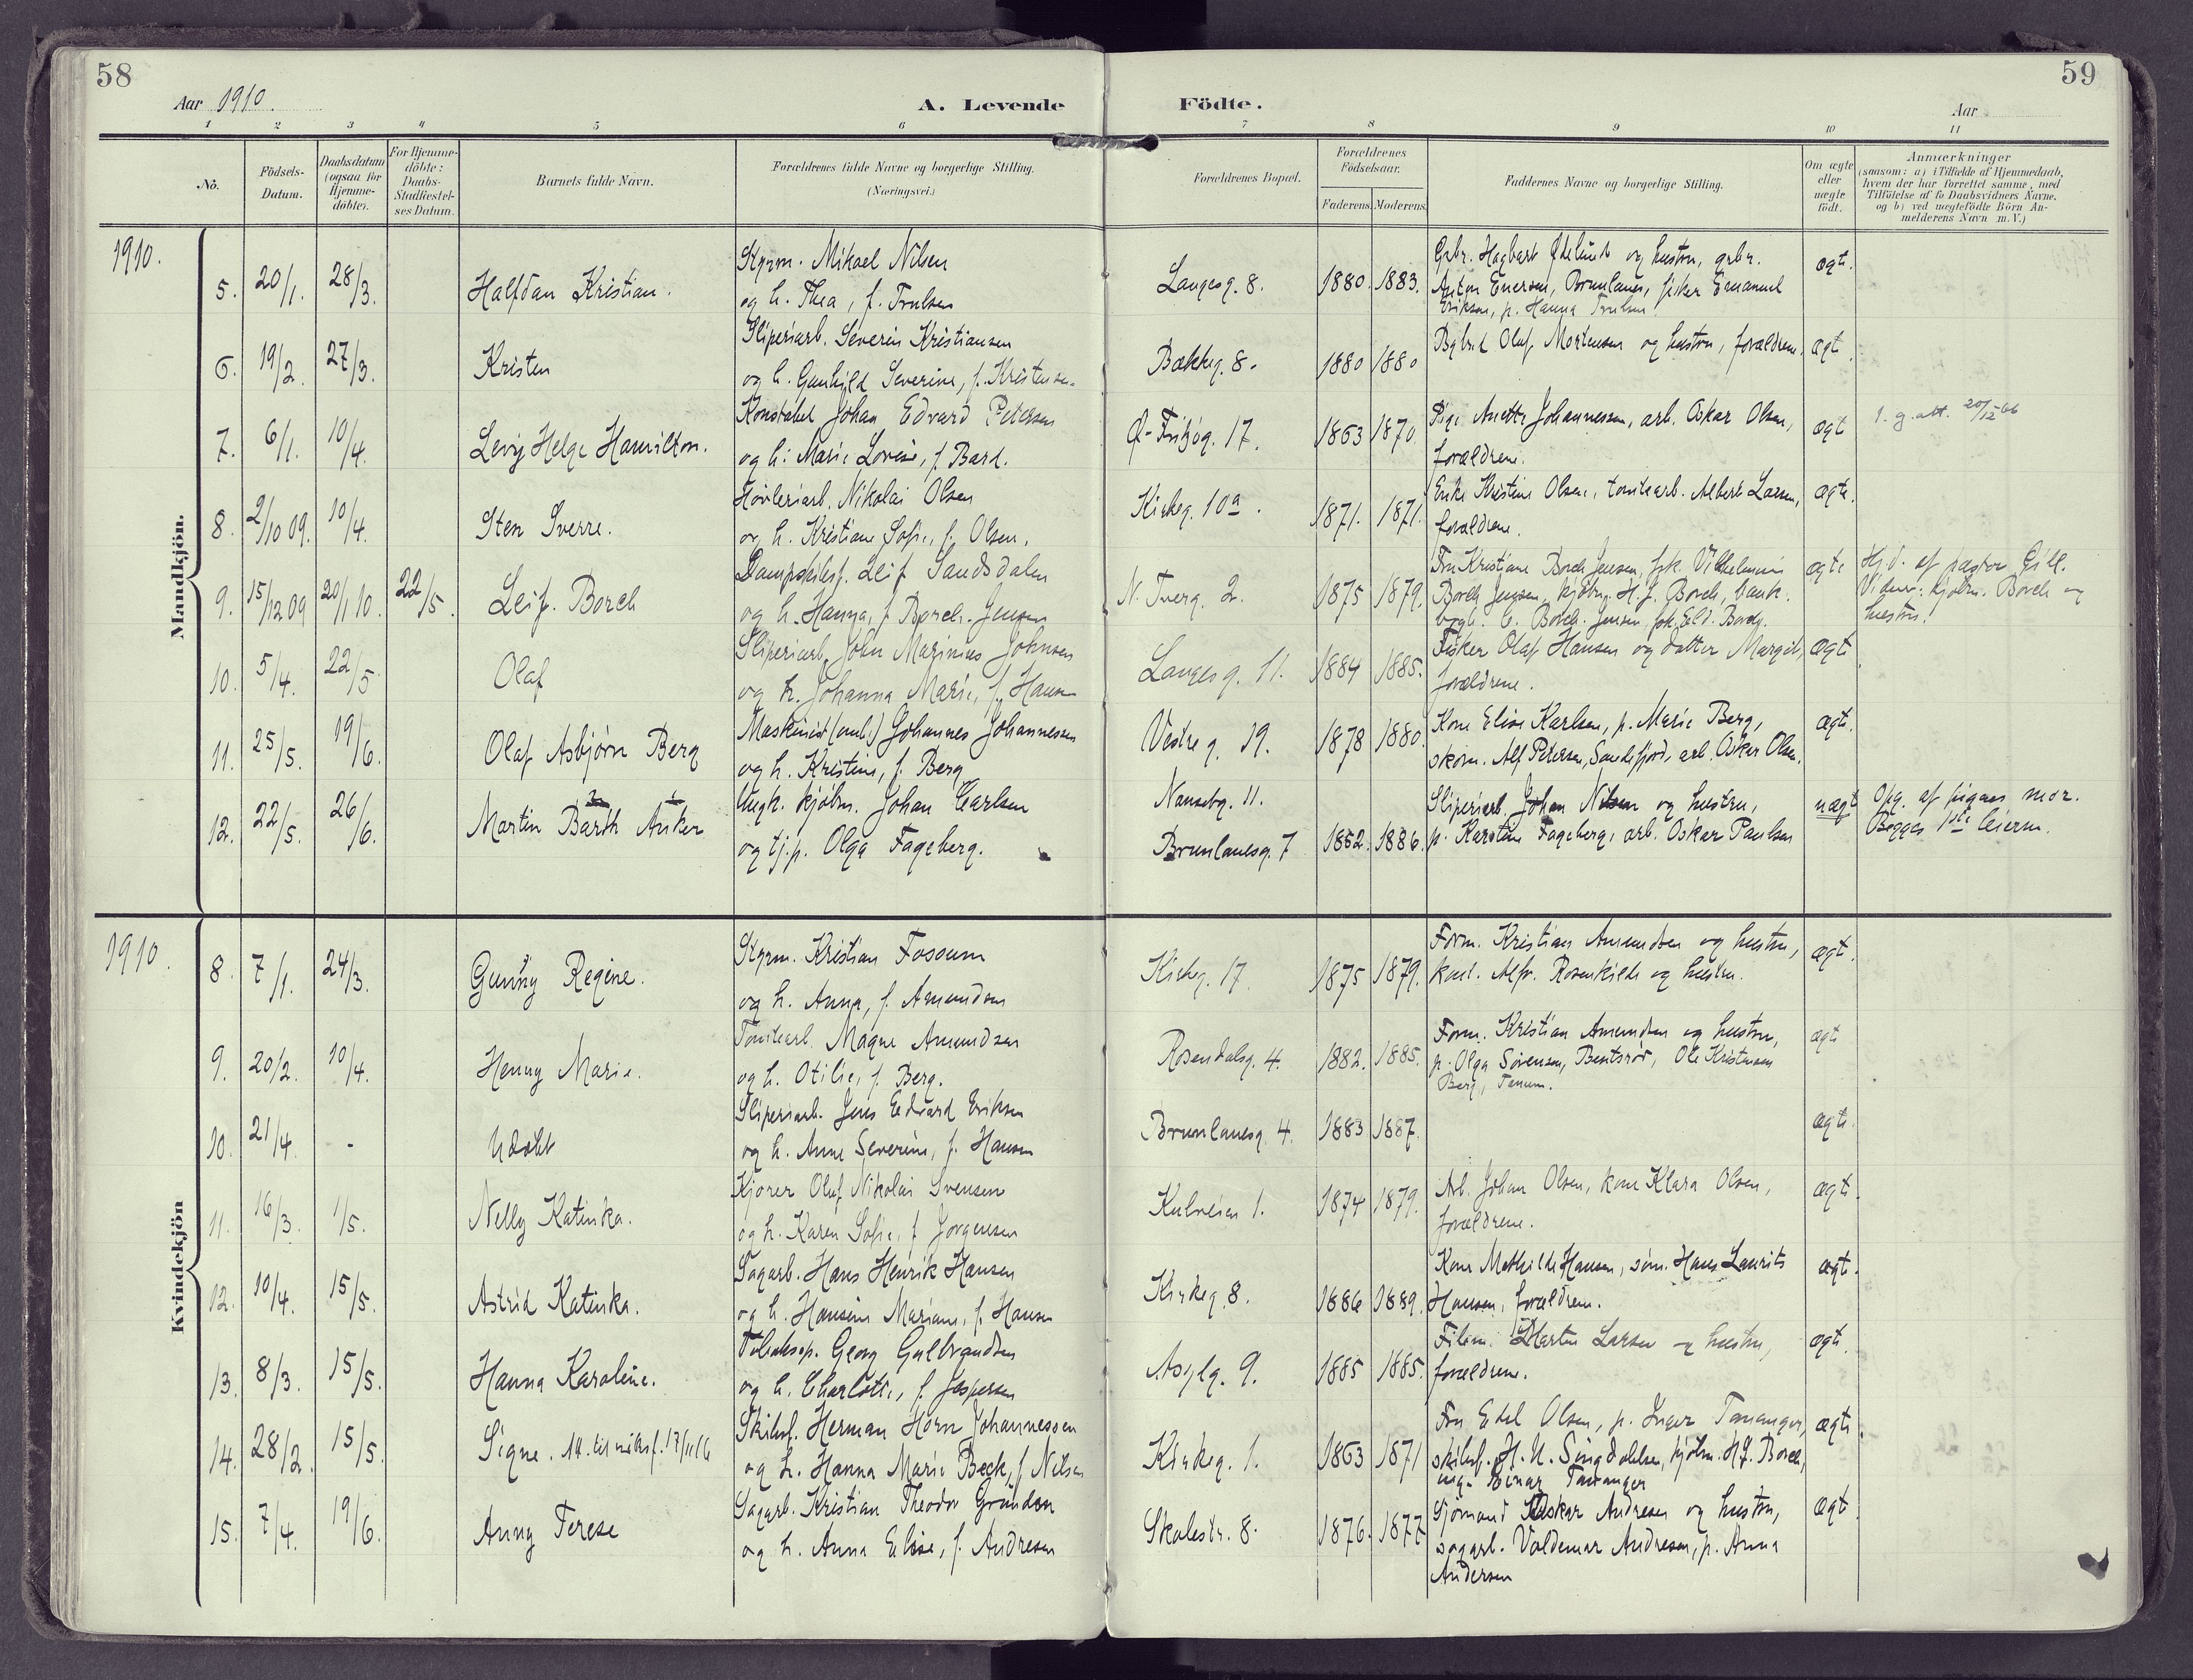 58
59
Aar 1910.
A. Levende
Födte.
Aar
1 2 3 4 5 6 7 8 9 10 11
No.
Födsels-Datum.
Daabsdatum (ogsaa for Hjemme-döbte).
For Hjemme-döbte: Daabs-Stadfæstel-ses Datum.
Barnets fulde Navn.
Forældrenes fulde Navne og borgerlige Stilling.
(Næringsvei.)
Forældrenes Bopæl.
Forældrenes Födselsaar.
Faderens. Moderens.
Faddernes Navne og borgerlige Stilling.
Om ægte eller uægte födt.
Anmærkninger
(saasom: a) i Tilfælde af Hjemmedaab,
hvem der har forrettet samme, med
Tilföielse af to Daabsvidners Navne,
og b) ved uægtefödte Börn An-
melderens Navn m. V.)
Mandkjön.
1910.
5. 20/1. 28/3. Halfdan Kristian.
Styrm. Mikael Nilsen
og h. Thea, f. Trulsen
Langesg. 8. 1880. 1883.
Grbr. Hagbart og hustru, grbr.
Anton Enersen, Brunlanes, fisker Emanuel
Eriksen, p. Hanna Trulsen.
ægte.
6. 19/2. 27/3. Kristen
Sliperiarb. Severin Kristiansen
og h. Gunhild Severine, f. Kristensen
Bakkeg. 8. 1880 1880
Bybud Olaf Mortensen og hustru, forældrene.
ægt.
7. 6/1. 10/4. Levy Helge Hamilton.
Konstabel Johan Edvard Petersen
og h. Marie Lovise, f. Bard.
Ø-Fritzøg. 17. 1863 1870.
Pige Anette Johannessen, arb. Oskar Olsen,
forældrene.
ægt
1. g. att. 20/12-66
8. 2/10 09. 10/4. Sten Sverre.
Høvleriarb. Nikolai Olsen
og h. Kristiane Sofie, f. Olsen.
Kirkeg. 10a. 1871. 1871.
Enke Kristine Olsen, tomtearb. Albert Larsen,
forældrene.
ægte.
9. 15/12 09 20/1 10. 22/5. Leif Borch
Dampskibsf. Leif Sandsdalen
og h. Hanna, f. Borch-Jensen
N. Tverg. 2. 1875 1879.
Fru Kristiane Borch Jensen, frk. Vilhelmine
Borch Jensen, kjøbm. H. J. Borch, bank-
bogh. C. Borch-Jensen,
ægte
Hj.d. af pastor Gill.
Vidner: kjøbm. Borch og
hustru.
10. 5/4. 22/5. Olaf
Sliperiarb. John Marinius Johnsen
og h. Johanna Marie, f. Hansen
Langesg. 11. 1884 1885.
Fisker Olaf Hansen og datter Margit,
forældrene.
ægte
11. 25/5. 19/6. Olaf Asbjørn Berg
Maskinist (omb.) Johannes Johannesen
og h. Kristine, f. Berg
Vestreg. 19. 1878 1880.
Kone Elise Karlsen, p. Marie Berg,
skom. Alf Petersen, Sandefjord, arb. Oskar Olsen.
ægte.
12. 22/5. 26/6. Martin Barth Anker
Ungk. kjøbm. Johan Carlsen
og tj.p. Olga Fageberg.
Nansetg. 11.
Brunlanesg. 7 1852. 1886.
Sliperiarb. Johan Nilsen og hustru,
p. Karoline Fageberg, arb. Oskar Paulsen
uægt
Opg. af pigens mor.
Begges 1ste leierm.
Kvindekjön
1910.
8. 7/1. 24/3. Gunny Regine.
Styrm. Kristian Fossum
og h. Anna, f. Amundsen
Kirkeg. 17. 1875 1879.
Form. Kristian Amundsen og hustru,
kont. Alfr. Rosenkilde og hustru.
ægt.
9. 20/2. 10/4. Henny Marie.
Tomtearb. Magne Amundsen
og h. Otilie, f. Berg.
Rosendalsg. 4. 1882. 1885.
Form. Kristian Amundsen og hustru,
p. Olga Sørensen, Bentsrød, Ole Kristensen
Berg, Tanum.
ægt
10. 21/4. - Udøbt
Sliperiarb. Jens Edvard Eriksen
og h. Anne Severine, f. Hansen
Brunlanesg. 4. 1883 1887.
ægte.
11. 16/3. 1/5. Nelly Katinka.
Kjører Oluf Nikolai Svensen
og h. Karen Sofie, f. Jørgensen
Kulveien 1. 1874 1879.
Arb. Johan Olsen, kone Klara Olsen,
forældrene.
ægte.
12. 10/4. 15/5. Astrid Katinka.
Sagarb. Hans Henrik Hansen
og h. Hansine Mariane, f. Hansen
Kirkeg. 8. 1886 1889.
Kone Mathilde Hansen, søm. Hans Laurits
Hansen, forældrene.
ægte.
13. 8/3. 15/5. Hanna Karoline.
Tobaksp. Georg Gulbrandsen
og h. Charlotte, f. Jespersen
Asylg. 9. 1885 1885.
Martin Larsen og hustru,
forældrene.
ægte.
14. 28/2. 15/5. Signe.
Skibsf. Herman Horn Johannessen
og h. Hanna Marie Beck, f. Nilsen
Kirkeg. 1. 1863 1871
Fru Edel Olsen, p. Inger Tananger,
skibsf. H. N. Singdahlsen, kjøbm. H. J. Borch,
ung. Einar Tananger
ægte.
15. 7/4. 19/6. Anny Terese
Sagarb. Kristian Theodor Grundsen
og h. Anna Elise, f. Andresen
Skolestr. 8. 1876. 1877
Sjømand Oskar Andresen og hustru,
sagarb. Valdemar Andresen, p. Anna
Andersen
ægt.